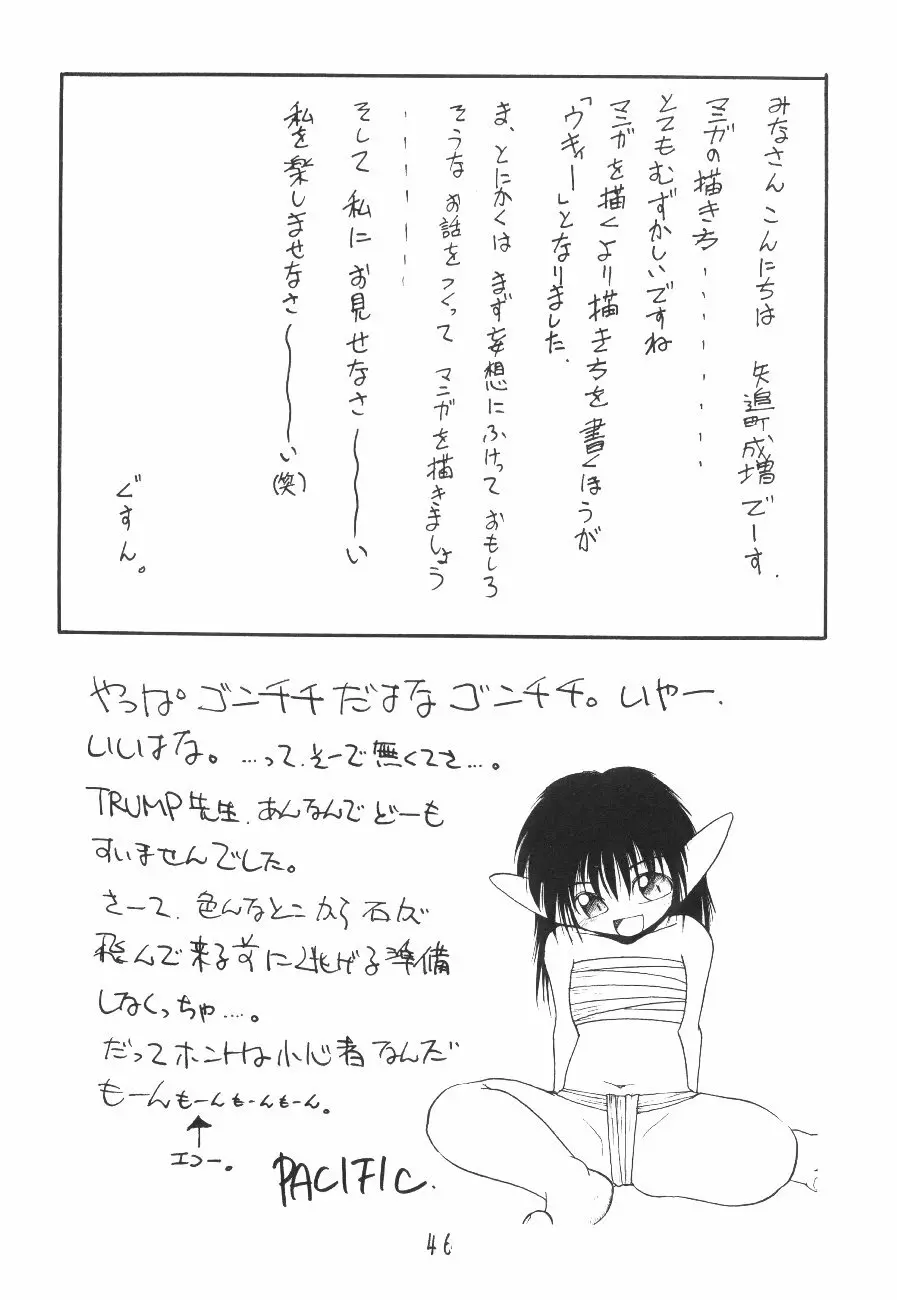 みなさん こんにちは 矢追町成増でーす.
マンガの描き方・・・・・・・・
とてもむずかしいですね
マンガを描くより描き方を書くほうが
「ウキィー」となりました.
ま、とにかくは まず妄想にふけって おもしろ
そうな お話をつくって マンガを描きましょう
・・・・・・・
そして 私に お見せなさ〜〜い
私を楽しませなさ〜〜〜い(笑)
ぐすん。
やっぱ。ゴンチチだはな ゴンチチ。いやー.
いいはな。…って、そーで無くてさ…。
TRUMP先生、あんなんで どーも
すいませんでした。
さーて、色んなとこから 石が
飛んで来る前に逃げる準備
しなくっちゃ….。
だってホントは小心者なんだ
もーんもーんもーんもーん。
↑
エコー。
PACIFIC.
46